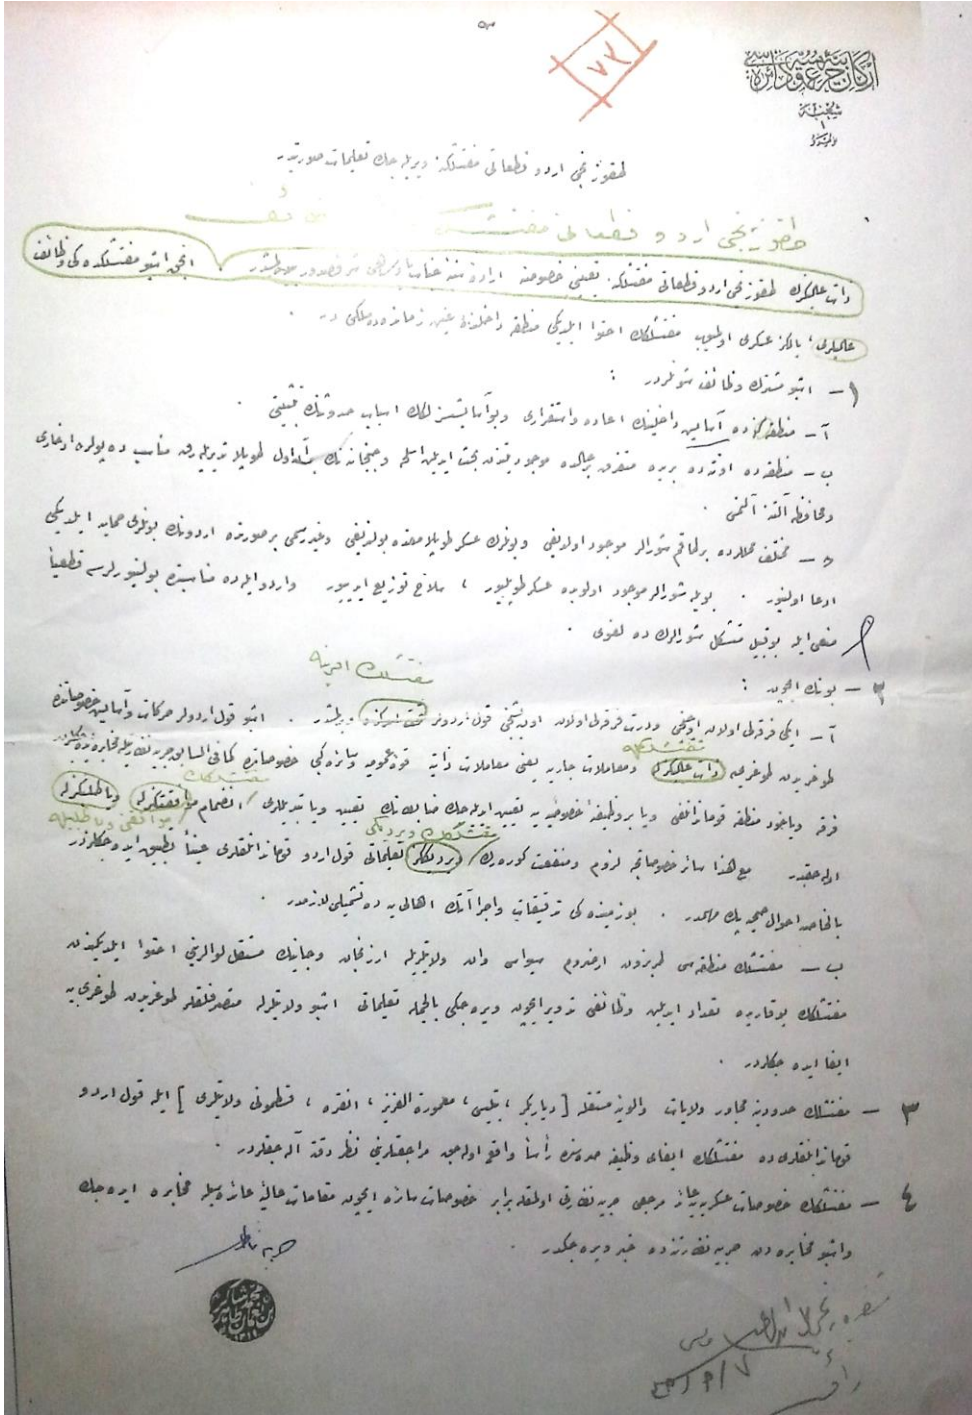 ٧٣
اركان حربيۀ عموميه دائره‌سى
شعبه
١
طقوزنجى اردو قطعاتى مفتشلكنه ويريله جك تعليمات صورتيدر
طقوزنجى اردو قطعاتى مفتشلكى
ذات عاليلرينك طقوزنجى اردو قطعاتى مفتشلكنه تعيينى خصوصنه ارادۀ سنيۀ جناب پادشاهى شرفصدور بيورلمشدر انجق اشبو مفتشلكده كى وظائف
عاليلرى يالكز عسكرى اولميوب مفتشلكك احتوا ايلديكى منطقه داخلنده عين زمانده ملكى در .
١ — اشبو مشترك وظائف شونلردر :
آ — منطقه ده آسايش داخلينك اعاده واستقرارى وبو آسايشسزلكك اسباب حدوثنك تثبيتى .
ب — منطقه ده اوته ده بريده متفرق بر حالده موجوديتندن بحث ايديلن اسلحه وجبخانه نك بر آن اول طوپلاتديريله رق مناسب ده پولره ادخارى
ومحافظه آلتنه آلنمى .
ج — مختلف محللرده بر طاقم شورالر موجود اولديغى وبونلرك عسكر طوپلامقده بولنديغى وغير رسمى بر صورتده اردونك بونلرى حمايه ايلديكى
ادعا اولنيور . بويله شورالر موجود اولوبده عسكر طوپليور ، سلاح توزيع ايدييور واردو ايله ده مناسبتده بولنيورلرسه قطعياً
منعى ايله بو قبيل متشكل شورالرك ده لغوى .
٢ — بونك ايچون :
مفتشلك امرينه
آ — ايكى فرقه لى اولان اوچنجى ودرت فرقه لى اولان اون بشنجى قول اردولر تحت امركزه ويرلمشدر . اشبو قول اردولر حركات وآسايش خصوصاتنده
طوغريدن طوغرى يه ذات عاليلرينه ومعاملات جاريه يعنى معاملات ذاتيه قوۀ عموميه وسائره كبى خصوصاتده كما فى السابق حربيه نظارتيله مخابره ايده جكلردر
مفتشلكله
فرقه وياخود منطقه قوماندانلغى ويا بر وظيفۀ خصوصيه يه تعيين ايديله جك ضابطانك تعيين ويا تبديللرى انضمام موافقتكزله ويا طلبكزله
مفتشلكك موافقتى ويا طلبيله
اوله جقدر مع هذا سائر خصوصاتجه لزوم ومنفعت كوره رك ويرديككز تعليماتى قول اردو قوماندانلقلرى عيناً تطبيق ايده جكلردر
مفتشلكك ويرديكى
بالخاصه احوال صحيه پك مهمدر . بو زمينده كى ترتيبات واجراآتك اهالى يه ده تشميلى لازمدر .
ب — مفتشلك منطقه سى طربزون ارضروم سيواس وان ولايتلريله ارزنجان وجانيك مستقل لوالرينى احتوا ايلديكندن
مفتشلكك يوقاريده تعداد ايديلن وظائفى تدوير ايچون ويره جكى بالجمله تعليماتى اشبو ولايتلرله متصرفلقلر طوغريدن طوغرى يه
ايفا ايده جكلردر .
٣ — مفتشلك حدودينه مجاور ولايات والويۀ مستقله [ دياربكر ، بتليس ، معمورة العزيز ، انقره ، قسطمونى ولايتلرى ] ايله قول اردو
قوماندانلقلرى ده مفتشلكك ايفاى وظيفه صره سنده رأساً واقع اوله جق مراجعتلرينى نظر دقته آله جقلردر .
٤ — مفتشلكك خصوصات عسكريه يه عائد مرجعى حربيه نظارتى اولمقله برابر خصوصات سائره ايچون مقامات عاليۀ عائده سيله مخابره ايده جك
واشبو مخابره دن حربيه نظارتنه ده خبر ويره جكدر .
حربيه ناظرى